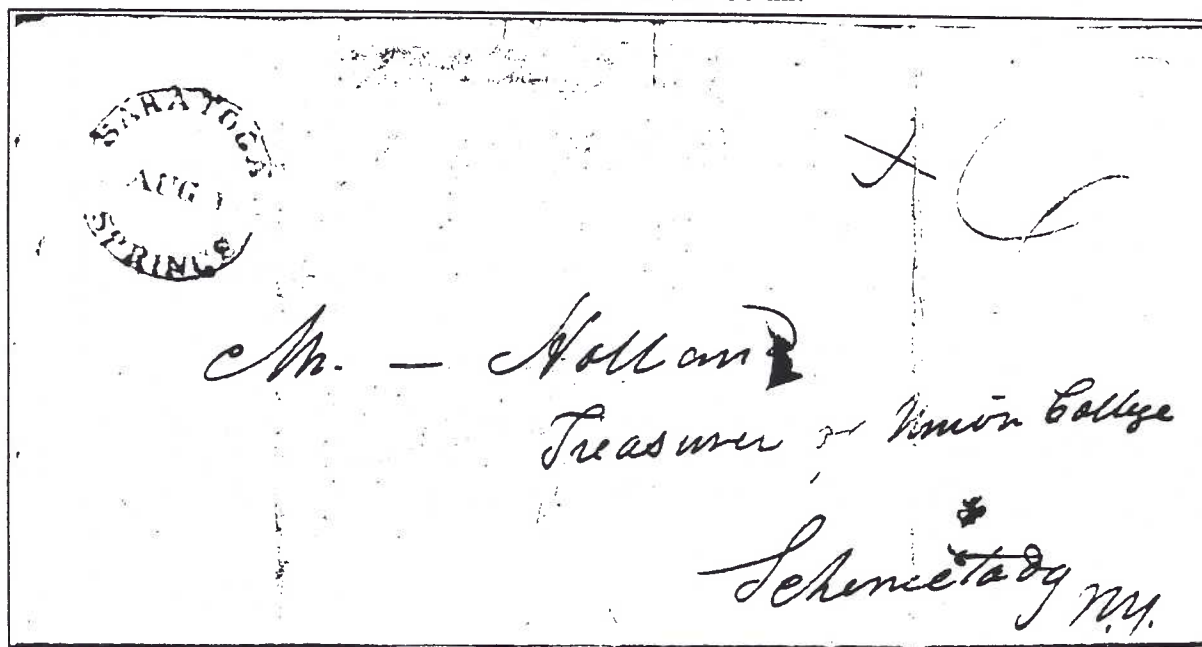 SARATOGA
AUG
SPRINGS
X 6
Mr. — Holland
Treasurer of Union College
Schenectady N.Y.